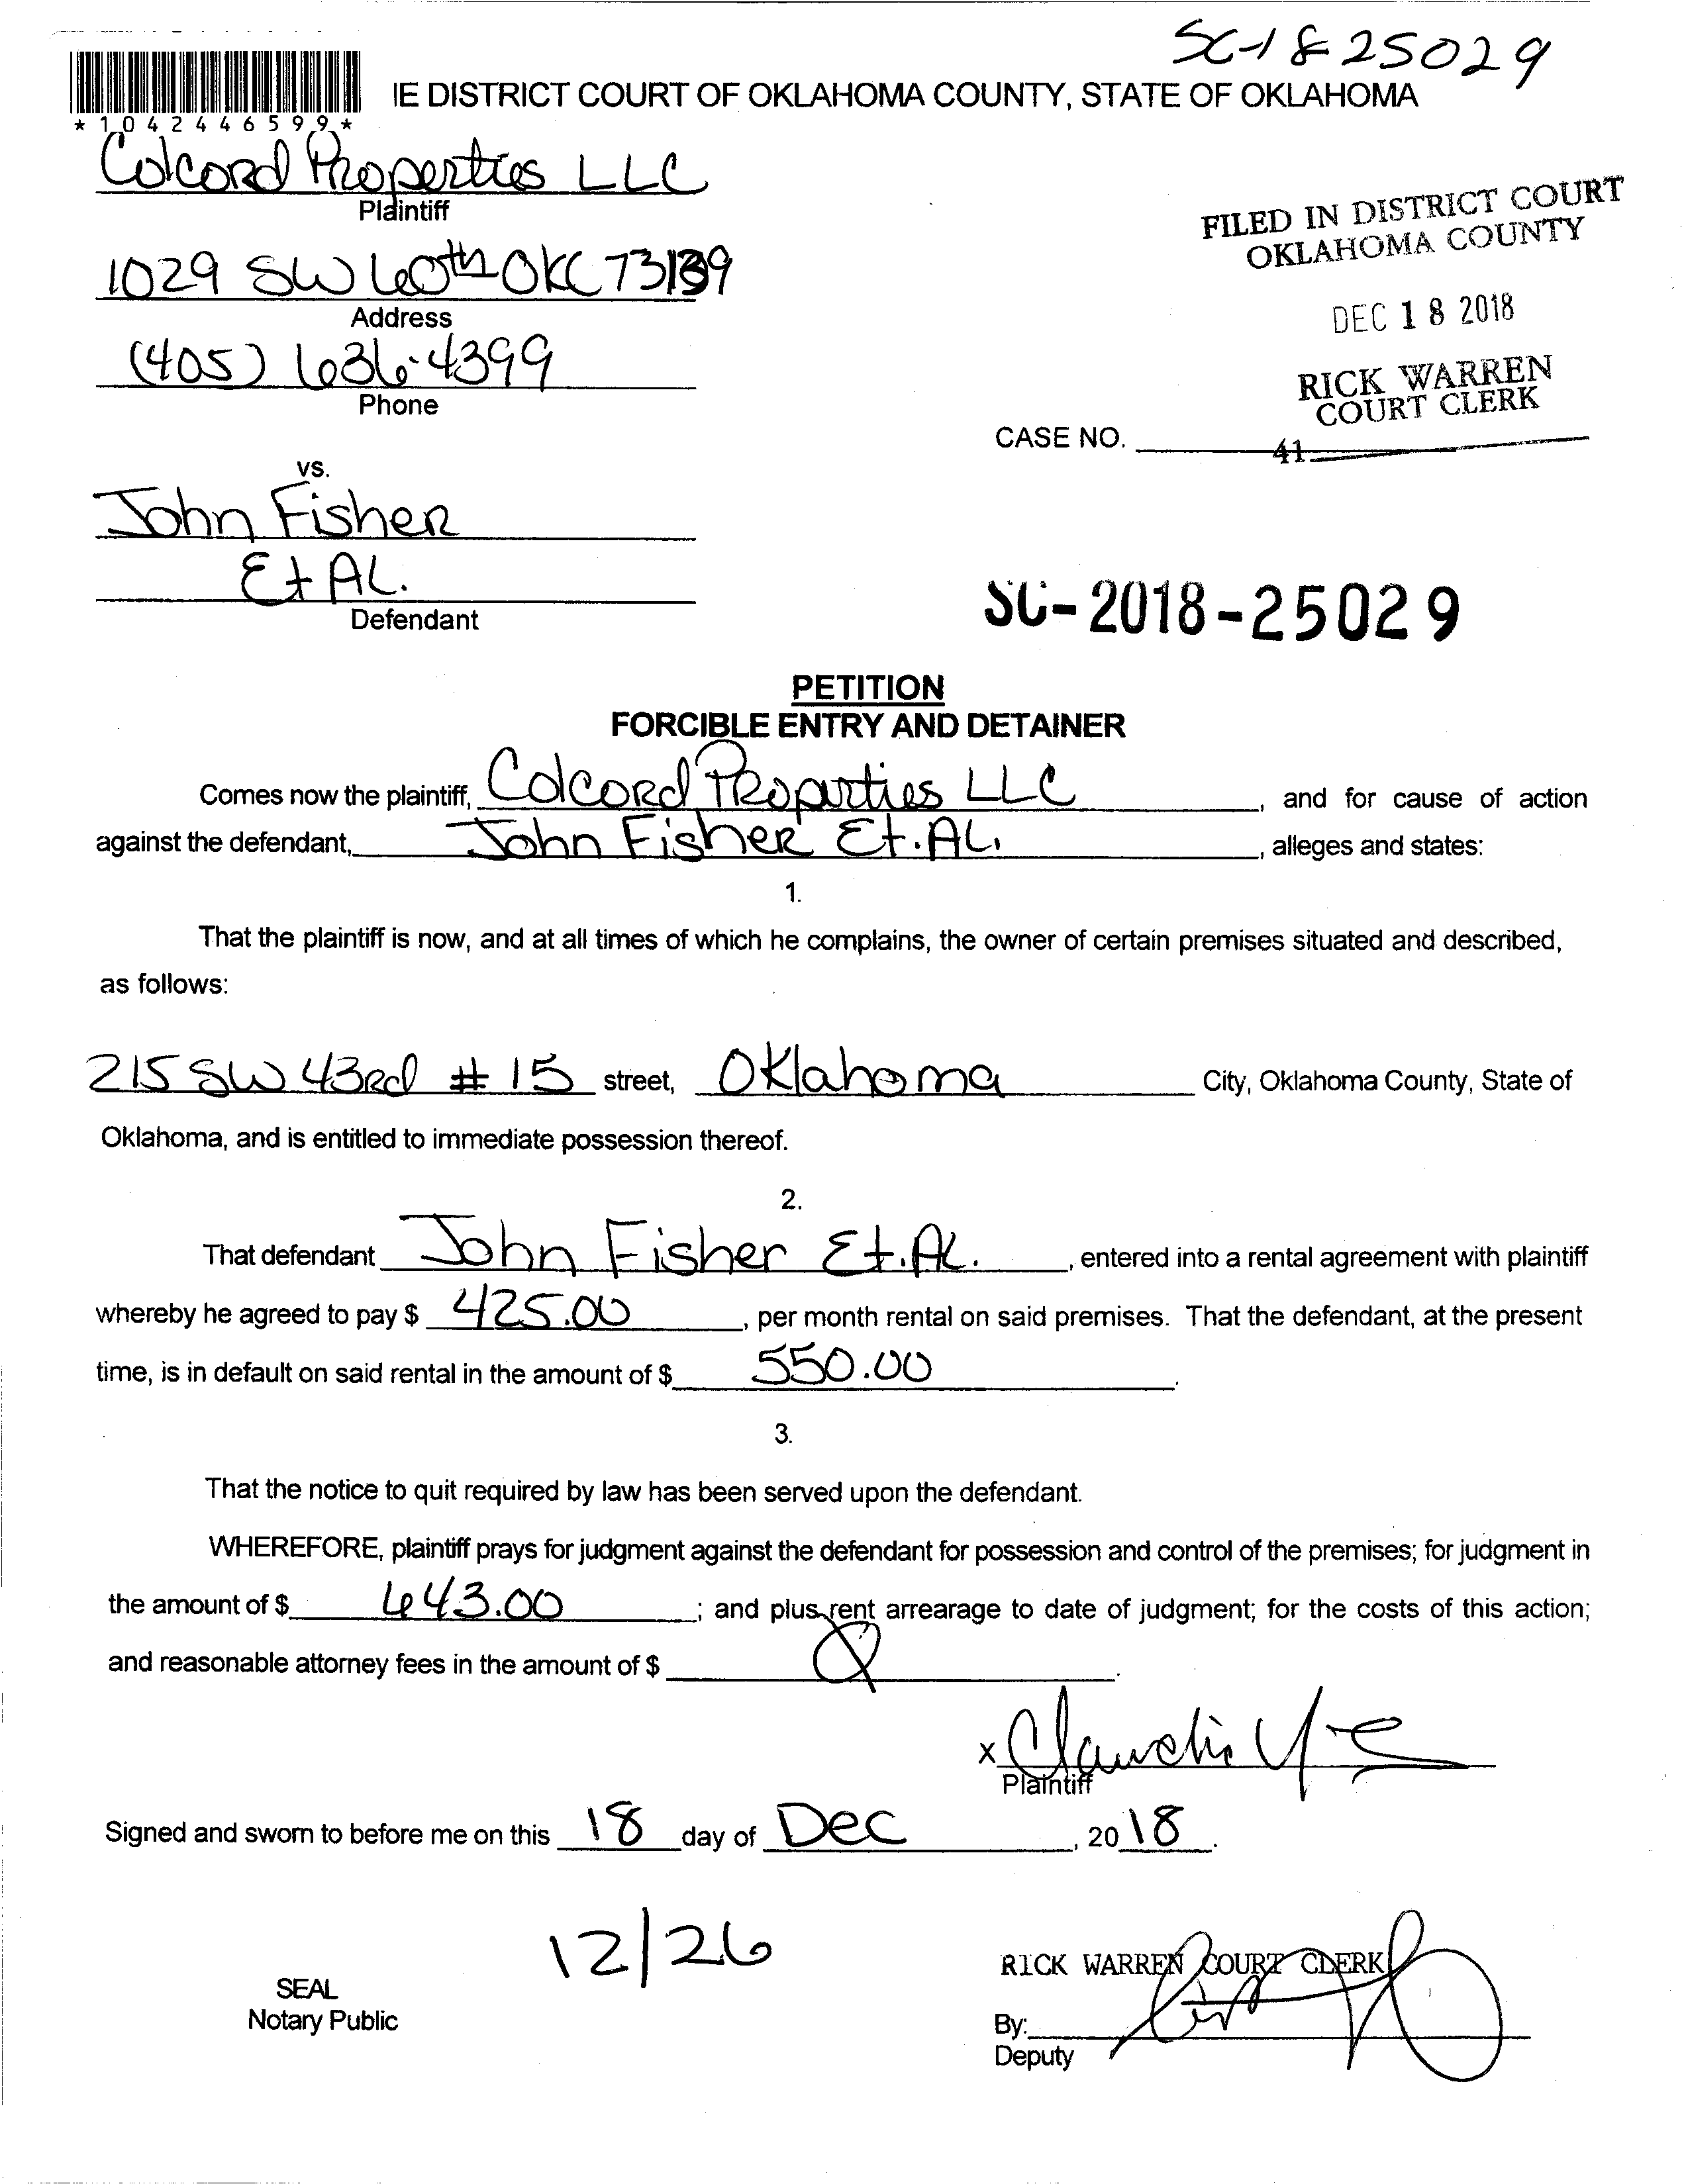 SC-18 25029
IE DISTRICT COURT OF OKLAHOMA COUNTY, STATE OF OKLAHOMA
* 1 0 4 2 4 4 6 5 9 9 *
Colcord Properties LLC
Plaintiff
FILED IN DISTRICT COURT
OKLAHOMA COUNTY
1029 SW 60th OKC 73139
Address
DEC 18 2018
(405) 636-4399
Phone
RICK WARREN
COURT CLERK
CASE NO.
41
vs.
John Fisher
Et AL.
Defendant
SC-2018-25029
PETITION
FORCIBLE ENTRY AND DETAINER
Comes now the plaintiff, Colcord Properties LLC, and for cause of action
against the defendant, John Fisher Et. AL., alleges and states:
1.
That the plaintiff is now, and at all times of which he complains, the owner of certain premises situated and described,
as follows:
215 SW 43rd # 15 street, Oklahoma City, Oklahoma County, State of
Oklahoma, and is entitled to immediate possession thereof.
2.
That defendant John Fisher Et. AL., entered into a rental agreement with plaintiff
whereby he agreed to pay $ 425.00, per month rental on said premises. That the defendant, at the present
time, is in default on said rental in the amount of $ 550.00.
3.
That the notice to quit required by law has been served upon the defendant.
WHEREFORE, plaintiff prays for judgment against the defendant for possession and control of the premises; for judgment in
the amount of $ 643.00; and plus rent arrearage to date of judgment; for the costs of this action;
and reasonable attorney fees in the amount of $
x Claudia
Plaintiff
Signed and sworn to before me on this 18 day of Dec, 2018.
12/26
RICK WARREN COURT CLERK
SEAL
Notary Public
By:
Deputy